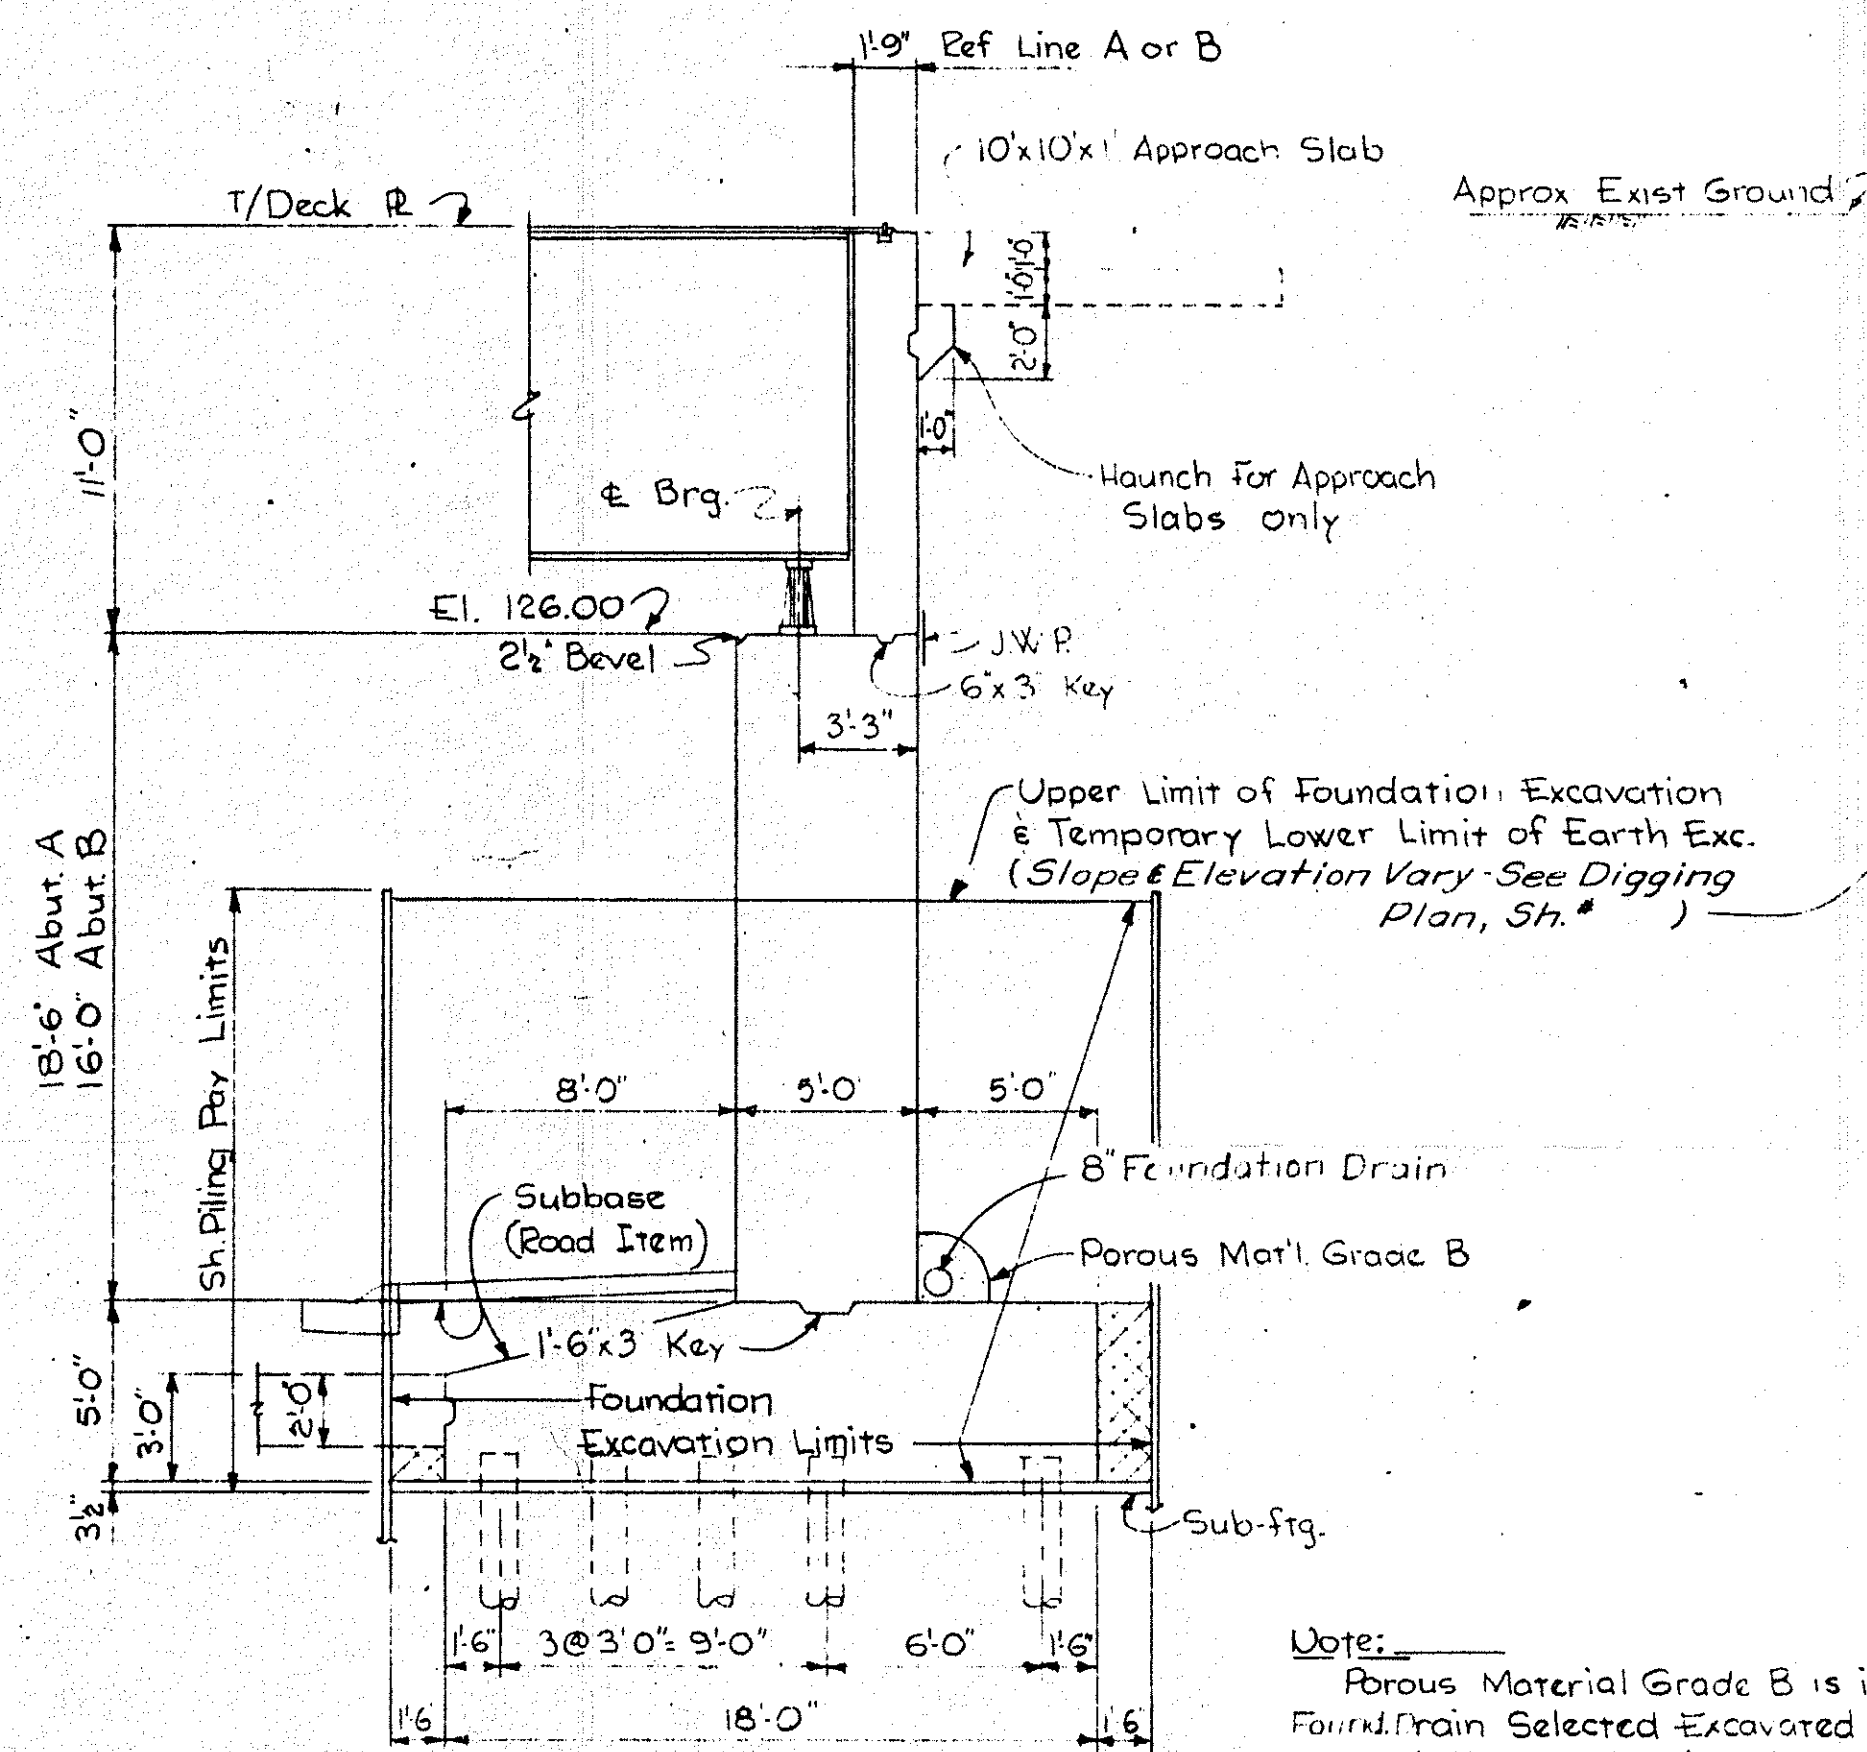 1'-9" Ref Line A or B
10'x10'x1' Approach Slab
Approx Exist Ground
T/Deck PL
1'-0"
1'-0"
2'-0"
1'-0"
11'-0"
℄ Brg.
Haunch For Approach
Slabs only
El. 126.00
2½" Bevel
J.W.P.
6"x3" Key
3'-3"
Upper Limit of Foundation Excavation
& Temporary Lower Limit of Earth Exc.
(Slope & Elevation Vary - See Digging
Plan, Sh.# )
18'-6" Abut. A
16'-0" Abut. B
Sh. Piling Pay Limits
8'-0"
5'-0
5'-0"
8" Foundation Drain
Subbase
(Road Item)
Porous Mat'l. Grade B
1'-6"x3 Key
5'-0"
3'-0"
2'-0"
Foundation
Excavation Limits
3½"
Sub-ftg.
1'-6"
3@3'0"= 9'-0"
6'-0"
1'-6"
1'6
18'-0"
1'6
Note:
Porous Material Grade B is
Found. Drain Selected Excavated